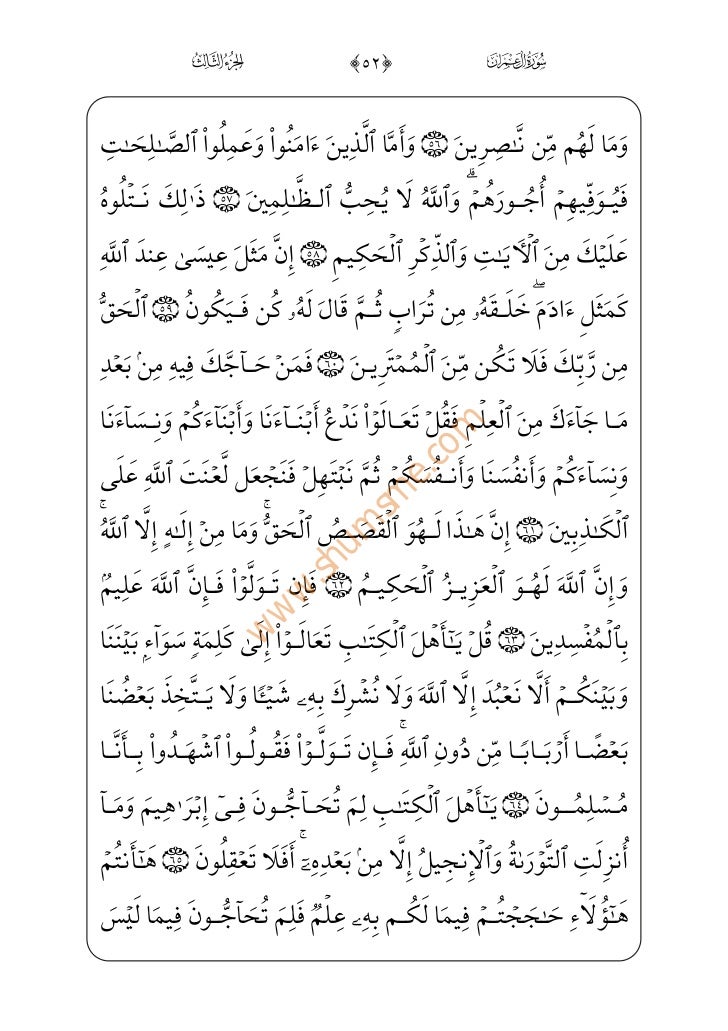 سُورَةُ آلِ عِمْرَانَ ﴿٥٢﴾ الجُزْءُ الثَّالِثُ
وَمَا لَهُم مِّن نَّـٰصِرِينَ ۝٥٦ وَأَمَّا ٱلَّذِينَ ءَامَنُوا۟ وَعَمِلُوا۟ ٱلصَّـٰلِحَـٰتِ
فَيُوَفِّيهِمْ أُجُورَهُمْ ۗ وَٱللَّهُ لَا يُحِبُّ ٱلظَّـٰلِمِينَ ۝٥٧ ذَٰلِكَ نَتْلُوهُ
عَلَيْكَ مِنَ ٱلْـَٔايَـٰتِ وَٱلذِّكْرِ ٱلْحَكِيمِ ۝٥٨ إِنَّ مَثَلَ عِيسَىٰ عِندَ ٱللَّهِ
كَمَثَلِ ءَادَمَ ۖ خَلَقَهُۥ مِن تُرَابٍ ثُمَّ قَالَ لَهُۥ كُن فَيَكُونُ ۝٥٩ ٱلْحَقُّ
مِن رَّبِّكَ فَلَا تَكُن مِّنَ ٱلْمُمْتَرِينَ ۝٦٠ فَمَنْ حَآجَّكَ فِيهِ مِنۢ بَعْدِ
مَا جَآءَكَ مِنَ ٱلْعِلْمِ فَقُلْ تَعَالَوْا۟ نَدْعُ أَبْنَآءَنَا وَأَبْنَآءَكُمْ وَنِسَآءَنَا
وَنِسَآءَكُمْ وَأَنفُسَنَا وَأَنفُسَكُمْ ثُمَّ نَبْتَهِلْ فَنَجْعَل لَّعْنَتَ ٱللَّهِ عَلَى
ٱلْكَـٰذِبِينَ ۝٦١ إِنَّ هَـٰذَا لَهُوَ ٱلْقَصَصُ ٱلْحَقُّ ۚ وَمَا مِنْ إِلَـٰهٍ إِلَّا ٱللَّهُ ۚ
وَإِنَّ ٱللَّهَ لَهُوَ ٱلْعَزِيزُ ٱلْحَكِيمُ ۝٦٢ فَإِن تَوَلَّوْا۟ فَإِنَّ ٱللَّهَ عَلِيمٌۢ
بِٱلْمُفْسِدِينَ ۝٦٣ قُلْ يَـٰٓأَهْلَ ٱلْكِتَـٰبِ تَعَالَوْا۟ إِلَىٰ كَلِمَةٍ سَوَآءٍۭ بَيْنَنَا
وَبَيْنَكُمْ أَلَّا نَعْبُدَ إِلَّا ٱللَّهَ وَلَا نُشْرِكَ بِهِۦ شَيْـًٔا وَلَا يَتَّخِذَ بَعْضُنَا
بَعْضًا أَرْبَابًا مِّن دُونِ ٱللَّهِ ۚ فَإِن تَوَلَّوْا۟ فَقُولُوا۟ ٱشْهَدُوا۟ بِأَنَّا
مُسْلِمُونَ ۝٦٤ يَـٰٓأَهْلَ ٱلْكِتَـٰبِ لِمَ تُحَآجُّونَ فِىٓ إِبْرَٰهِيمَ وَمَآ
أُنزِلَتِ ٱلتَّوْرَىٰةُ وَٱلْإِنجِيلُ إِلَّا مِنۢ بَعْدِهِۦٓ ۚ أَفَلَا تَعْقِلُونَ ۝٦٥ هَـٰٓأَنتُمْ
هَـٰٓؤُلَآءِ حَـٰجَجْتُمْ فِيمَا لَكُم بِهِۦ عِلْمٌ فَلِمَ تُحَآجُّونَ فِيمَا لَيْسَ
www.shumsme.com